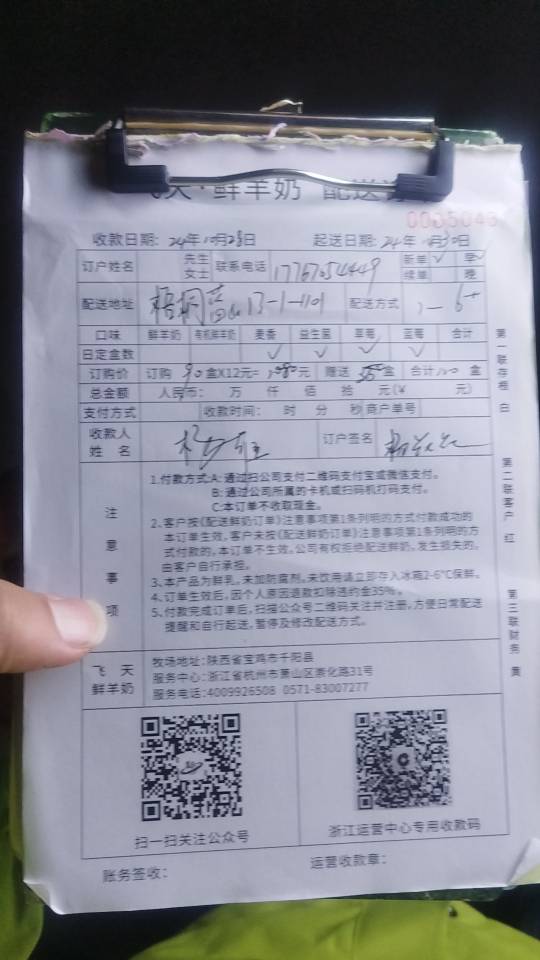 飞天·鲜羊奶 配送
收款日期: 24年10月28日 起送日期: 24年 月30日
订户姓名 先生 女士 联系电话 17767054449 新单 √ 早 √
续单 晚
配送地址 梧桐蓝山 13-1-1101 配送方式
口味 鲜羊奶 有机鲜羊奶 麦香 益生菌 草莓 蓝莓 合计
日定盒数 √ √ √ √
订购价 订购 90 盒X12元= 1080元 赠送 盒 合计 盒
总金额 人民币: 万 仟 佰 拾 元(¥ 元)
支付方式 收款时间: 时 分 秒 商户单号
收款人姓名 订户签名
注意事项
1.付款方式:A:通过扫公司支付二维码支付宝或微信支付。
B:通过公司所属的卡机或扫码机打码支付。
C:本订单不收取现金。
2、客户按《配送鲜奶订单》注意事项第1条列明的方式付款成功的
本订单生效,客户未按《配送鲜奶订单》注意事项第1条列明的方
式付款的,本订单不生效,公司有权拒绝配送鲜奶,发生损失的,
由客户自行承担。
3、本产品为鲜乳,未加防腐剂,未饮用请立即存入冰箱2-6℃保鲜。
4、订单生效后,因个人原因退款扣除违约金35%。
5、付款完成订单后,扫描公众号二维码关注并注册,方便日常配送
提醒和自行起送,暂停及修改配送方式。
飞天鲜羊奶
牧场地址:陕西省宝鸡市千阳县
服务中心:浙江省杭州市萧山区崇化路31号
服务电话:4009926508 0571-83007277
扫一扫关注公众号 浙江运营中心专用收款码
账务签收: 运营收款章:
第一联存根 白
第二联客户 红
第三联财务 黄